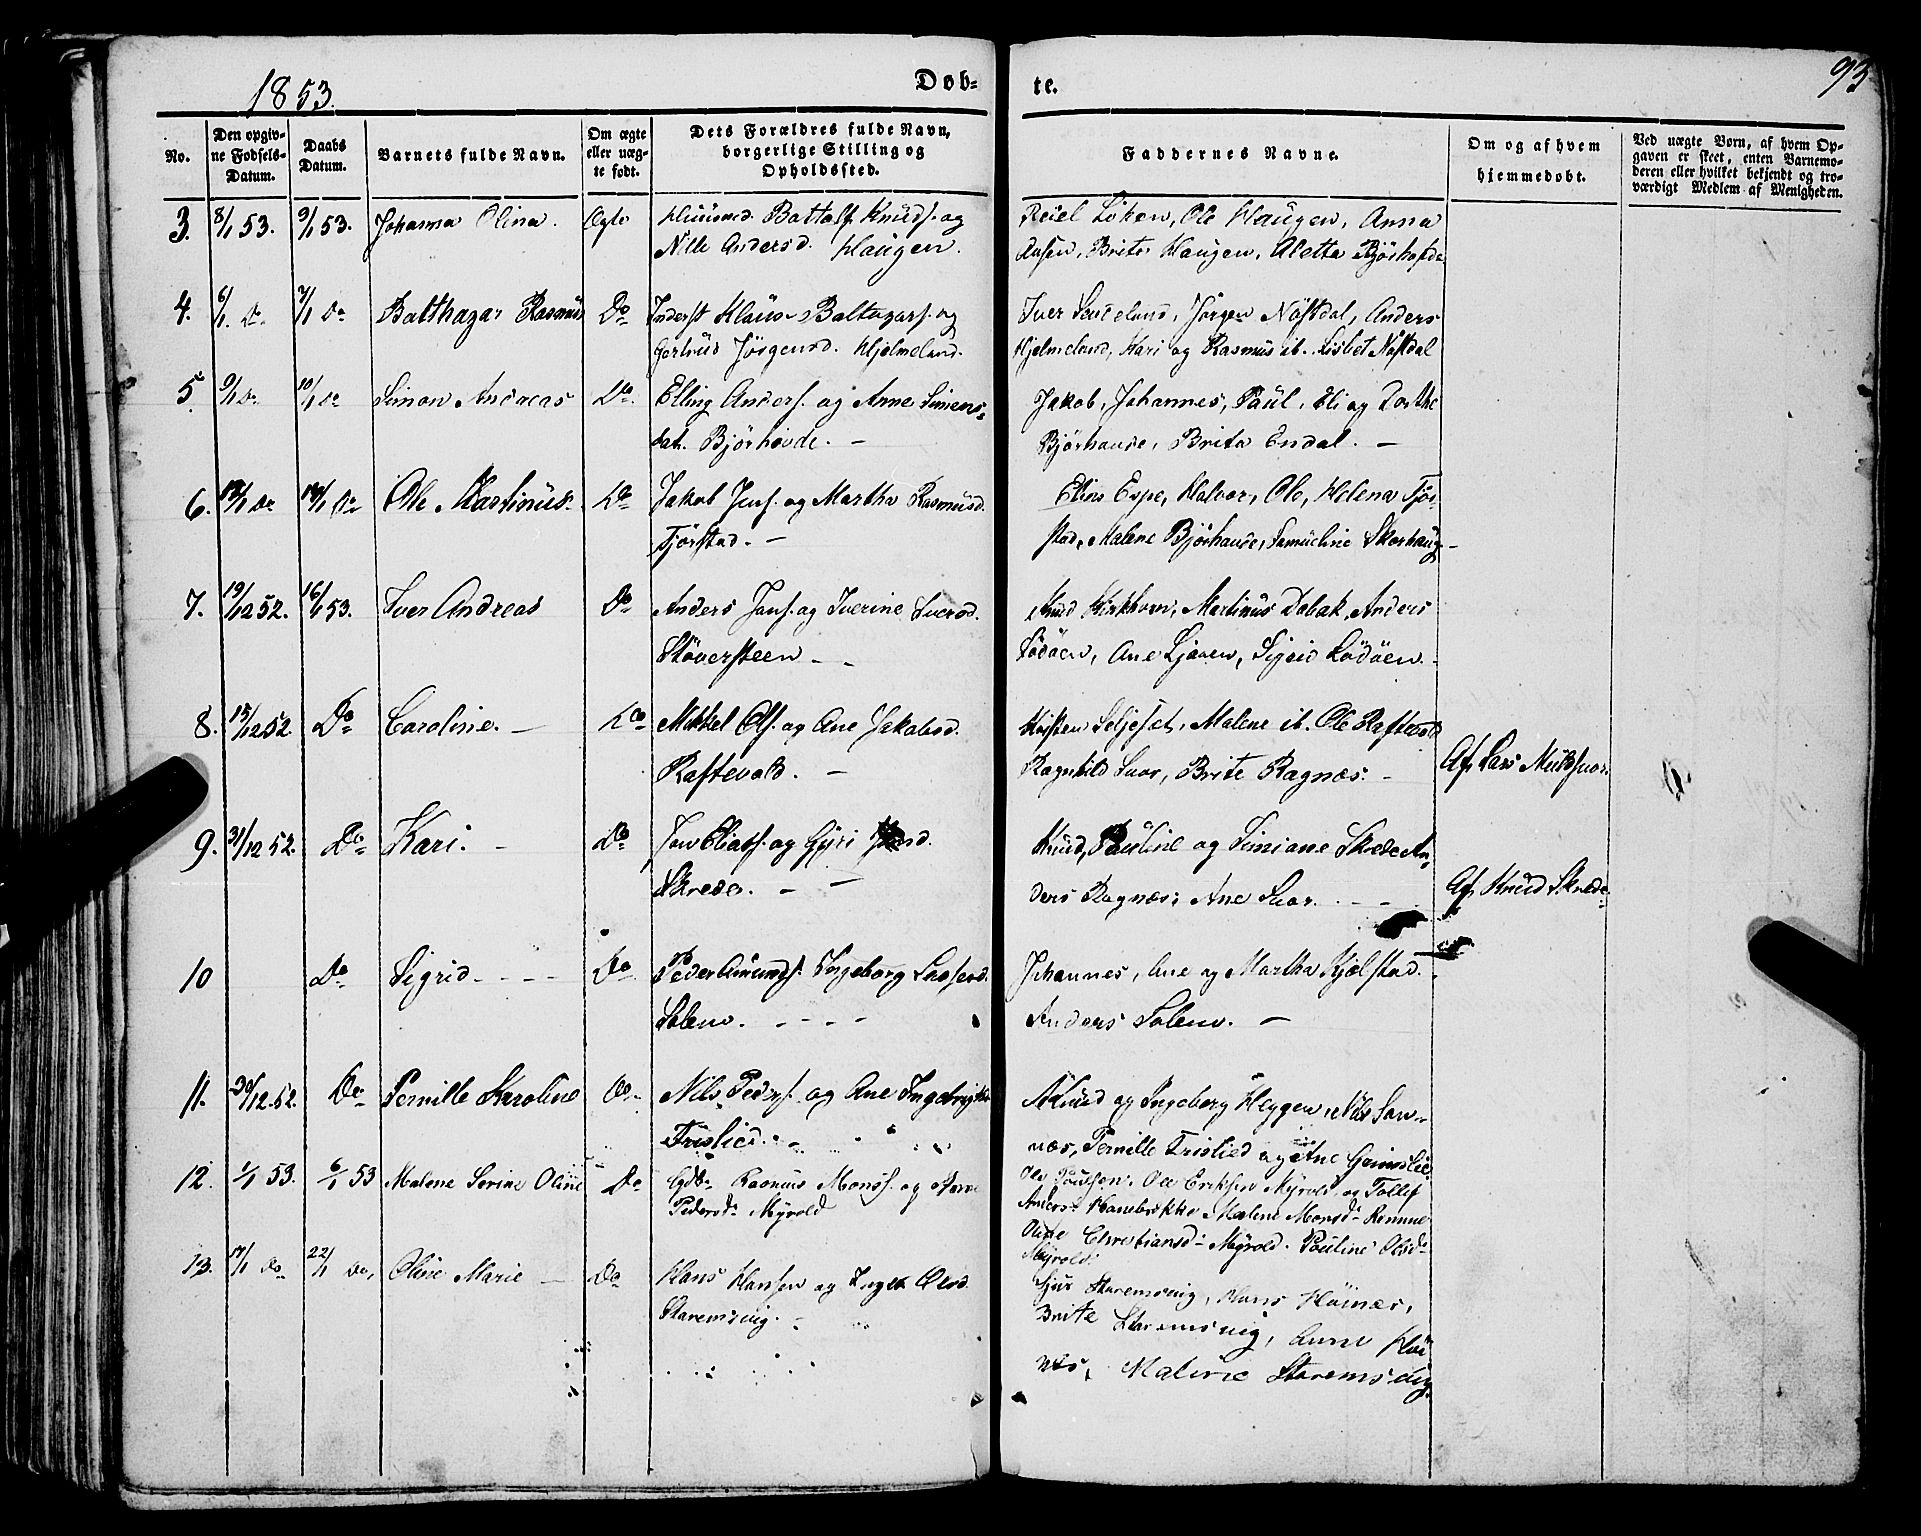 1853.
Døb-
te.
93
No.
Den opgiv-
ne Fødsels-
Datum.
Daabs
Datum.
Barnets fulde Navn.
Om ægte
eller uæg-
te født.
Dets Forældres fulde Navn,
borgerlige Stilling og
Opholdssted.
Faddernes Navne.
Om og af hvem
hjemmedøbt.
Ved uægte Børn, af hvem Op-
gaven er skeet, enten Barnemo-
deren eller hvilket bekjendt og tro-
værdigt Medlem af Menigheden.
3. 8/1 53. 9/1 53. Johanna Olina. Ægte Huusmd. Battolf Knuds. og
Nille Andersd. Haugen.
Løken, Ole Haugen, Anna
Aasen, Brite Haugen, Aletta
4. 6/1 Do 7/1 Do Balthazar Rasmus Do Inderst Klaus Baltazars. og
Gertrud Jørgensd. Hjelmeland.
Iver Jørgen Nøstdal, Anders
Hjelmeland, Kari og Rasmus ib. Lisbet Nøstdal
5. 9/1 Do 10/1 Do Simon Andreas Do. Elling Anders. og Anne Simens-
dat. Bjørhovde. -
Jakob, Johannes, Paul, Eli og Dorthe
Bjørhaude, Brita Endal. -
6. Do Do Ole Martinus. Do Jakob Jens. og Martha Rasmusd.
Tjørstad. -
Elias Espe, Halvor, Ole, Helena Tjør-
stad, Malene Bjørhaude, Samueline Skorhaug -
7. 19/12 52. 16/1 53. Iver Andreas Do Anders Jans. og Iverine Iversd.
Støversteen - -
Knud Kirkhorn, Martinus Døbak, Anders
Lødøen, Ane Ljøen, Sigrid Lødøen.
8. 15/12 52. Do Caroline. - Do Mikkel Ols. og Ane Jakobsd.
Raftevold. -
Kristen Seljeset, Malene ib. Ole Raftevold
Ragnhild Suor, Brite Ragnæs. -
Af Lars
9. 31/12 52. Do Kari. - Do Jon Eliass. og Gyri
Skrede. - -
Knud, Pauline og Simiane Skrede An-
ders Ragnæs, Ane Suor. - - -
Af Knud Skrede.
10 Do Sigrid - - - - Do Peder Amunds. Ingeborg Lassesd.
Solem. - - - -
Johannes, Ane og Martha Kjølstad.
Anders Solem. -
11. 30/12 52. Do Pernille Karoline Do. Nils Peders. og Ane
Frislied.
Knud og Ingeborg Heggen, Nils
næs, Pernille Frislied og Ane Grimslie
12. 1/1 53. 6/1 53 Malene Serine Oline Do Gdb. Rasmus Mons. og
Pedersd. Myrold
Ole Paulsen, Ole Eriksen Myrold og Tollef
Anders. Hanebrekke Malene Monsd. Remme
Oline Christiansd. Myrold. Pauline Olsd.
Myrold.
13. 17/1 Do 22/1 Do, Oline Marie - Do Hans Hansen og Inger Olsd.
Staremsvig. -
Sjur Staremsvig, Hans Høinæs,
Brite Staremsvig, Anne Høi
næs, Malene Staremsvig